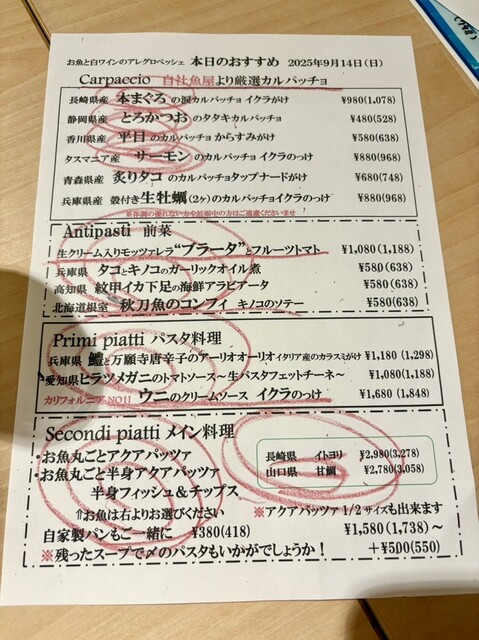 お魚と白ワインのアレグロペッシェ 本日のおすすめ 2025年9月14日(日)
Carpaccio 自社魚屋より厳選カルパッチョ
長崎県産 本まぐろの涙カルパッチョ イクラがけ ¥980(1,078)
静岡県産 とろかつおのタタキカルパッチョ ¥480(528)
香川県産 平目のカルパッチョ からすみがけ ¥580(638)
タスマニア産 サーモンのカルパッチョ イクラのっけ ¥880(968)
青森県産 炙りタコのカルパッチョタップナードがけ ¥680(748)
兵庫県産 殻付き生牡蠣(2ヶ)のカルパッチョイクラのっけ ¥880(968)
※体調の優れない方や妊娠中の方はご遠慮くださいませ
Antipasti 前菜
生クリーム入りモッツァレラ“ブラータ”とフルーツトマト ¥1,080(1,188)
兵庫県 タコとキノコのガーリックオイル煮 ¥580(638)
高知県 紋甲イカ下足の海鮮アラビアータ ¥580(638)
北海道根室 秋刀魚のコンフィ キノコのソテー ¥580(638)
Primi piatti パスタ料理
兵庫県 鱧と万願寺唐辛子のアーリオオーリオイタリア産のカラスミがけ ¥1,180(1,298)
愛知県ヒラツメガニのトマトソース~生パスタフェットチーネ~ ¥1,080(1,188)
カリフォルニア NO11 ウニのクリームソース イクラのっけ ¥1,680(1,848)
Secondi piatti メイン料理
・お魚丸ごとアクアパッツァ
・お魚丸ごと半身アクアパッツァ
半身フィッシュ&チップス
⇑お魚は右よりお選びください
長崎県 イトヨリ ¥2,980(3,278)
山口県 甘鯛 ¥2,780(3,058)
※アクアパッツァ 1/2 サイズも出来ます
自家製パンもご一緒に ¥380(418) ¥1,580(1,738)~
※残ったスープで〆のパスタもいかがでしょうか! +¥500(550)